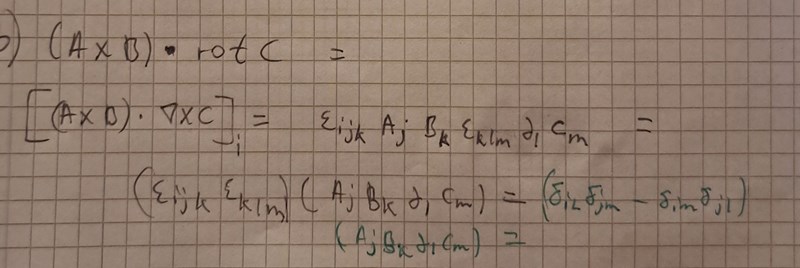 b) (A × B) • rot C =
[(A × B) · ∇×C]ᵢ = εᵢⱼₖ Aⱼ Bₖ εₖₗₘ ∂ₗ Cₘ =
(εᵢⱼₖ εₖₗₘ) (Aⱼ Bₖ ∂ₗ Cₘ) = (δᵢₗ δⱼₘ − δᵢₘ δⱼₗ)
(Aⱼ Bₖ ∂ₗ Cₘ) =